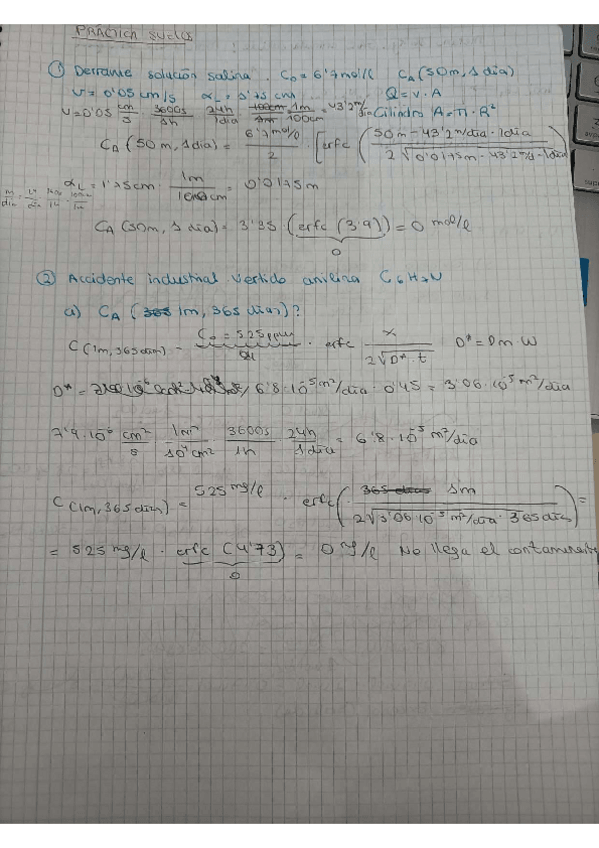 PRÁCTICA SUELOS
① Derrame solución salina. C₀ = 6'7 mol/l CA (50m, 1 dia)
V = 0'05 cm/s αL = 1'75 cm Q = V · A
V = 0'05 cm/s · 3600s/1h · 24h/1dia · 1m/100cm = 43'2 m/ Cilindro A = π · R²
CA (50m, 1 dia) = 6'7 mol/l / 2 · [erfc ( 50m - 43'2 m/dia · 1dia / 2 √0'0175m · 43'2 m/d · 1dia )
αL = 1'75 cm · 1m/100cm = 0'0175m
CA (50m, 1 dia) = 3'35 (erfc (3'9)) = 0 mol/l
0
② Accidente industrial vertido anilina C6H7N
a) CA (1m, 365 dias)?
C(1m, 365 dias) = C₀ = 525 ppm · erfc x / 2√D* · t D* = Dm · W
D* = 6'8 · 10⁻⁵ m²/dia · 0'45 = 3'06 · 10⁻⁵ m²/dia
7'9 · 10⁻⁶ cm²/s · 1m²/10⁴ cm² · 3600s/1h · 24h/1dia = 6'8 · 10⁻⁵ m²/dia
C(1m, 365 dias) = 525 mg/l · erfc ( 1m / 2√3'06 · 10⁻⁵ m²/dia · 365 dias ) =
= 525 mg/l · erfc (4'73) = 0 mg/l No llega el contaminante
0